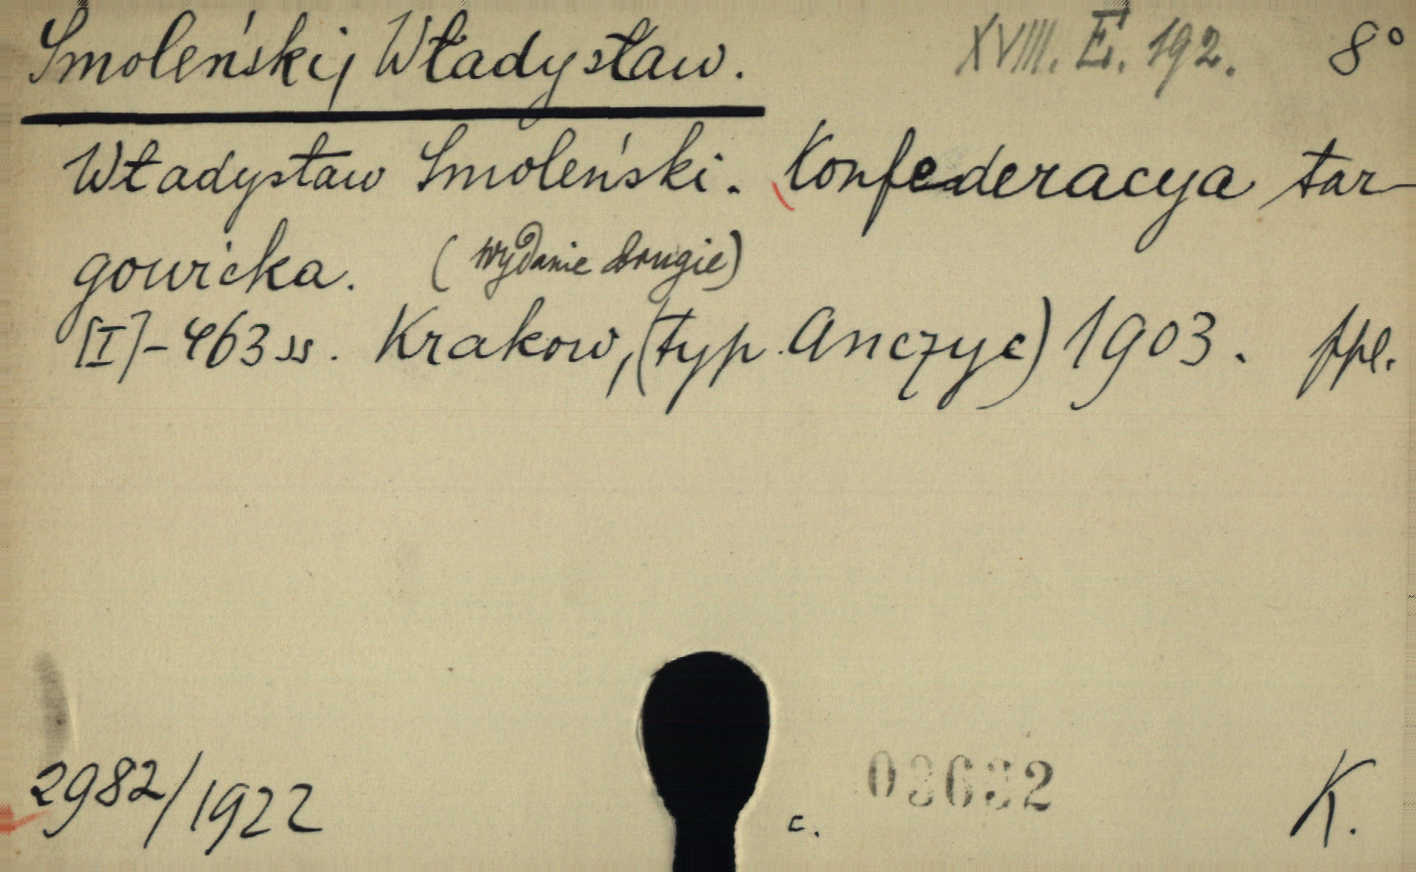 Smoleński, Władysław. XVIII. E. 192. 8°
Władysław Smoleński. Konfederacya tar-
gowicka. (wydanie drugie)
[I]-463 ss. Krakow, (typ. Anczyc) 1903. ppł.
2982/1922 c. 03632 K.